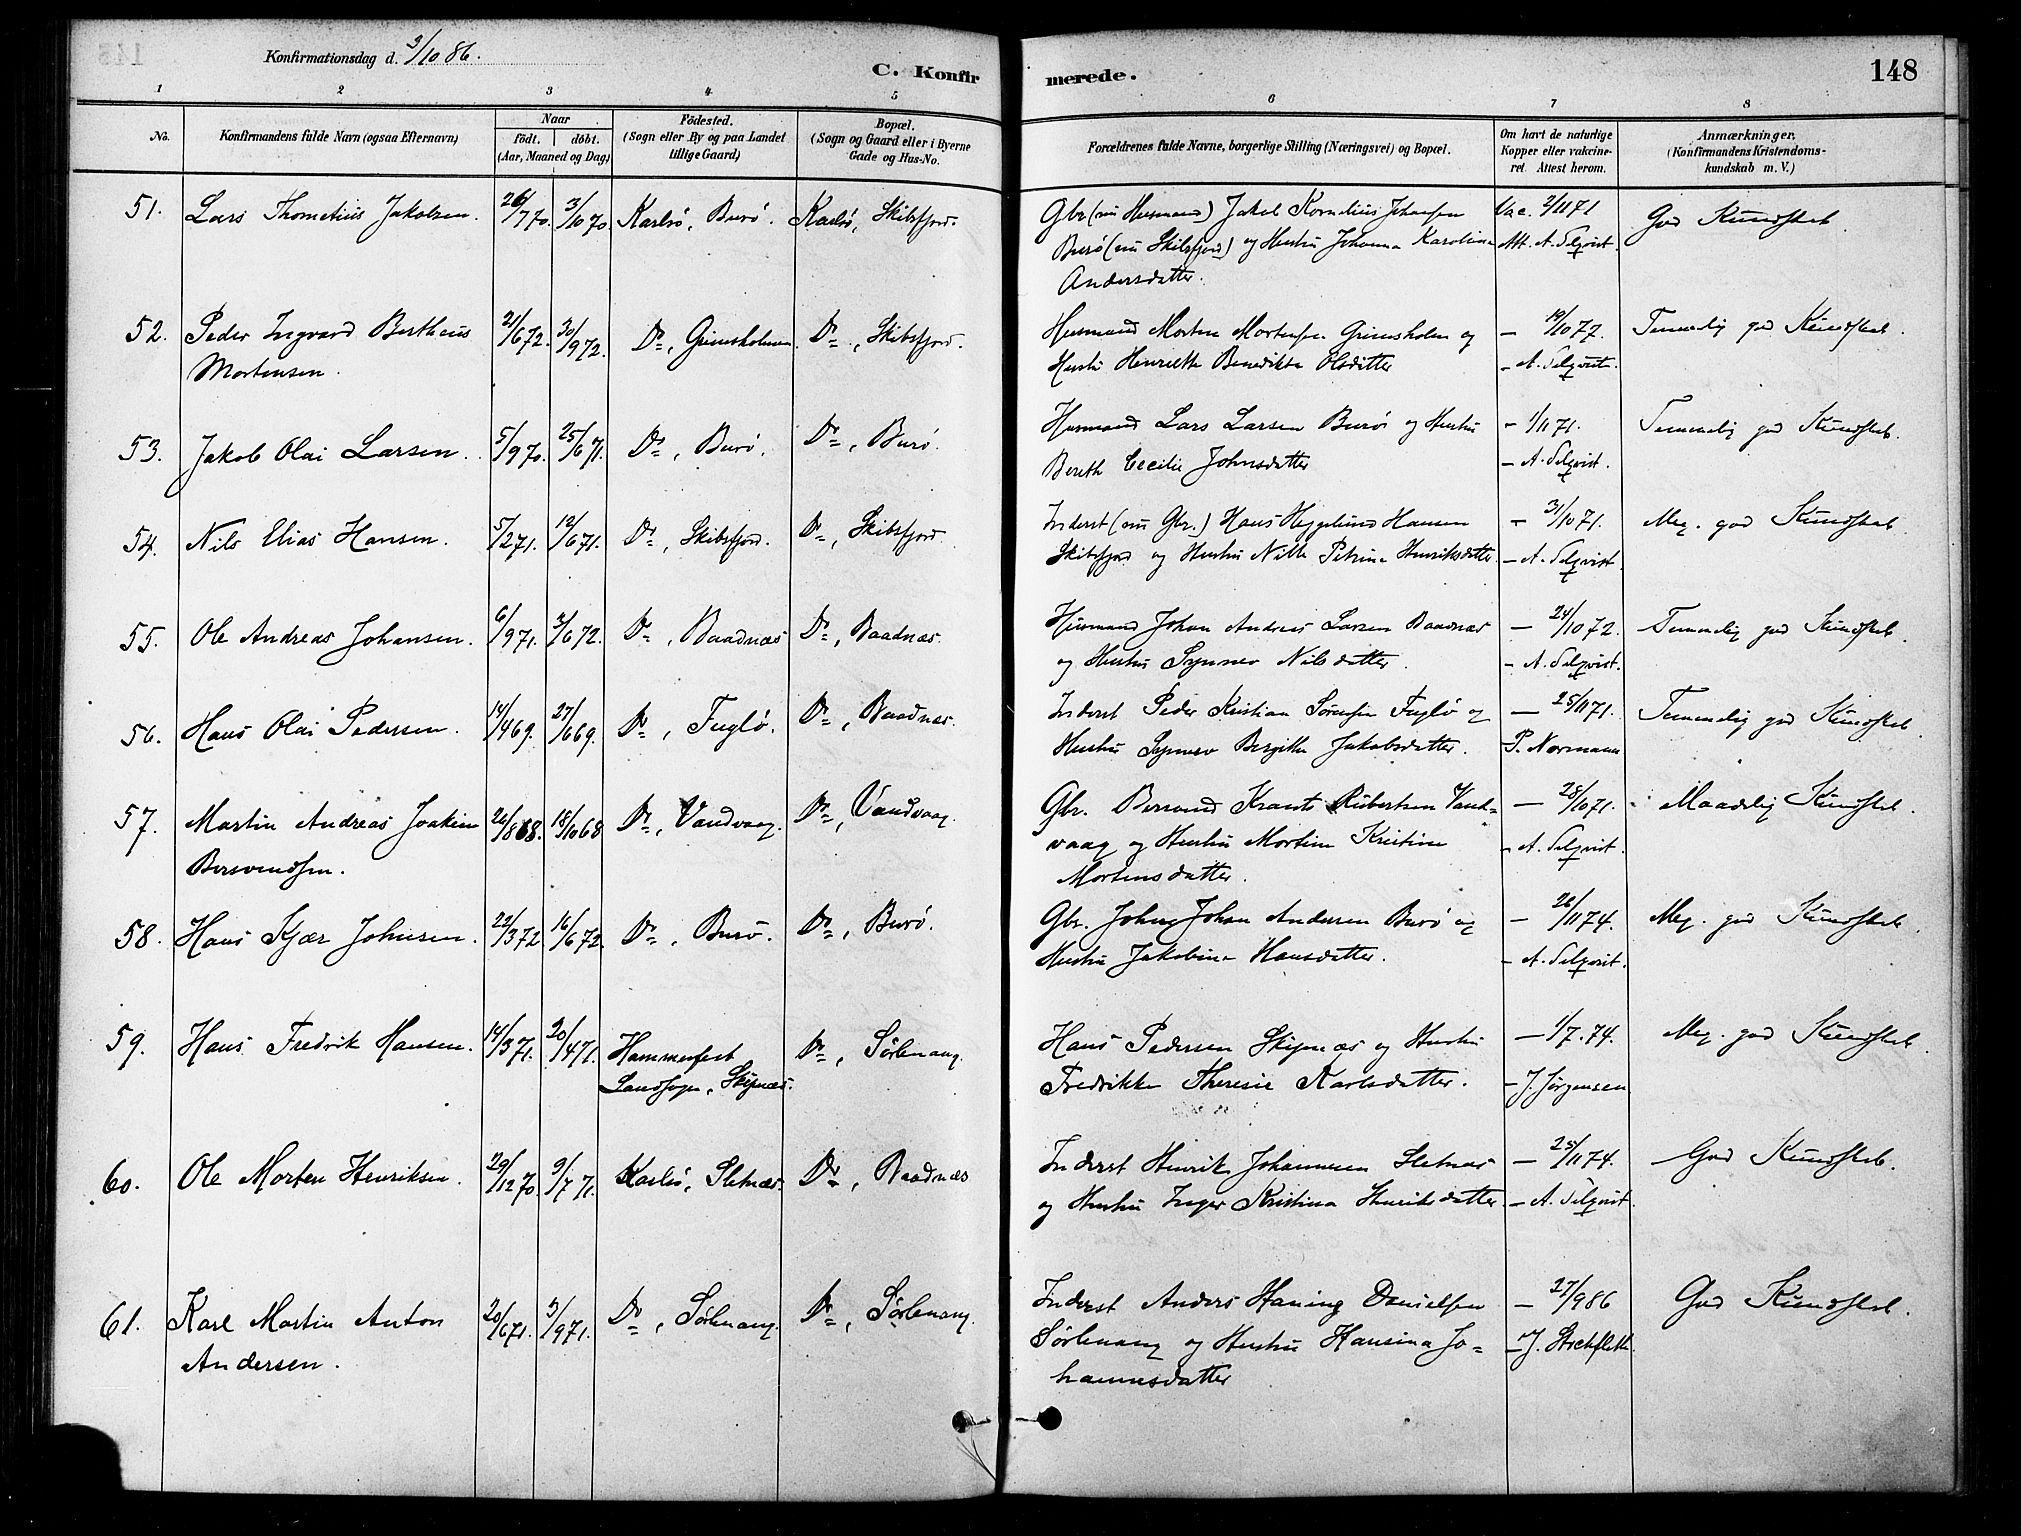 Konfirmationsdag d. 3/10 86.
C. Konfirmerede.
148
1 2 3 4 5 6 7 8
No.
Konfirmandens fulde Navn (ogsaa Efternavn)
Naar
födt. döbt.
(Aar, Maaned og Dag)
Födested.
(Sogn eller By og paa Landet
tillige Gaard)
Bopæl.
(Sogn og Gaard eller i Byerne
Gade og Hus-No.
Forældrenes fulde Navne, borgerlige Stilling (Næringsvei) og Bopæl.
Om havt de naturlige
Kopper eller vakcine-
ret. Attest herom.
Anmærkninger,
(Konfirmandens Kristendoms-
kundskab m. V.)
51. Lars Thometius Jakobsen. 26/7 70. 3/10 70 Karlsö, Burö. Karlsö, Skibsfjord. Gbr (nu Husmand) Jakob Kornelius Johansen Vac. 2/11 71 God Kundskab.
Burö (nu Skibsfjord) og Hustru Johanna Karolina Att. A. Selqvist.
Andersdatter.
52. Peder Ingvard Bertheus 21/6 72. 30/9 72. Do, Grimsholmen. Do, Skibsfjord. Husmand Morten Mortensen Grimsholm og — 19/10 77. Temmelig god Kundskab.
Mortensen. Hustru Henriette Benedikta Olsdatter – A. Selqvist.
53. Jakob Olai Larsen. 5/9 70. 25/6 71. Do, Burö. Do, Burö. Husmand Lars Larsen Burö og Hustru – 1/11 71. Temmelig god Kundskab.
Bereth Cecilie Johnsdatter – A. Selqvist.
54. Nils Elias Hansen. 5/2 71. 12/6 71. Do, Skibsfjord. Do, Skibsfjord Inderst (nu Gbr.) Hans Heggelund Hansen – 31/10 71. Meg. god Kundskab.
Skibsfjord og Hustru Nille Petrina Henriksdatter – A. Selqvist.
55. Ole Andreas Johansen. 6/9 71. /6 72. Do, Baadnæs Do, Baadnæs. Husmand Johan Andreas Larsen Baadnæs — 24/10 72. Temmelig god Kundskab.
og Hustru Synnev Nilsdatter. – A. Selqvist.
56. Hans Olai Pedersen. 14/4 69. 27/6 69. Do, Fuglö. Do, Baadnæs. Inderst Peder Kristian Sörensen Fuglö og — 25/11 71. Temmelig god Kundskab.
Hustru Synnev Bergitte Jakobsdatter. P. Normann
57. Martin Andreas Joakim 26/8 68. 18/10 68 Do, Vandvaag. Do, Vandvaag. Gbr. Bersvend Krantz Robertsen Vand- — 28/10 71. Maadelig Kundskab.
Bersvendsen. vaag og Hustru Mortine Kristine – A. Selqvist.
Mortensdatter.
58. Hans Kjær Johnsen. 22/3 72 16/6 72. Do, Burö. Do, Burö. Gbr. John Johan Andersen Burö og – 26/11 74. Meg. god Kundskab.
Hustru Jakobina Hansdatter. – A. Selqvist.
59. Hans Fredrik Hansen. 14/3 71. 20/4 71. Hammerfest Do, Sörlenang. Hans Pedersen Skipnæs og Hustru — 1/7. 74. Meg. god Kundskab.
Landsogn, Skipnæs. Fredrikke Theresie Karlsdatter. – J. Jörgensen
60. Ole Morten Henriksen. 29/12 70. 9/7 71. Karlsö, Sletnæs. Do, Baadnæs Inderst Henrik Johannesen Sletnæs — 25/11 74. God Kundskab.
og Hustru Inger Kristina Henriksdatter. – A. Selqvist.
61. Karl Martin Anton 20/6 71. 3/9 71. Do, Sörlenang. Do, Sörlenang. Inderst Anders Haning Danielsen — 27/9 86 God Kundskab.
Andersen. Sörlenang og Hustru Hansina Jo- – J. Stockfleth
hannesdatter